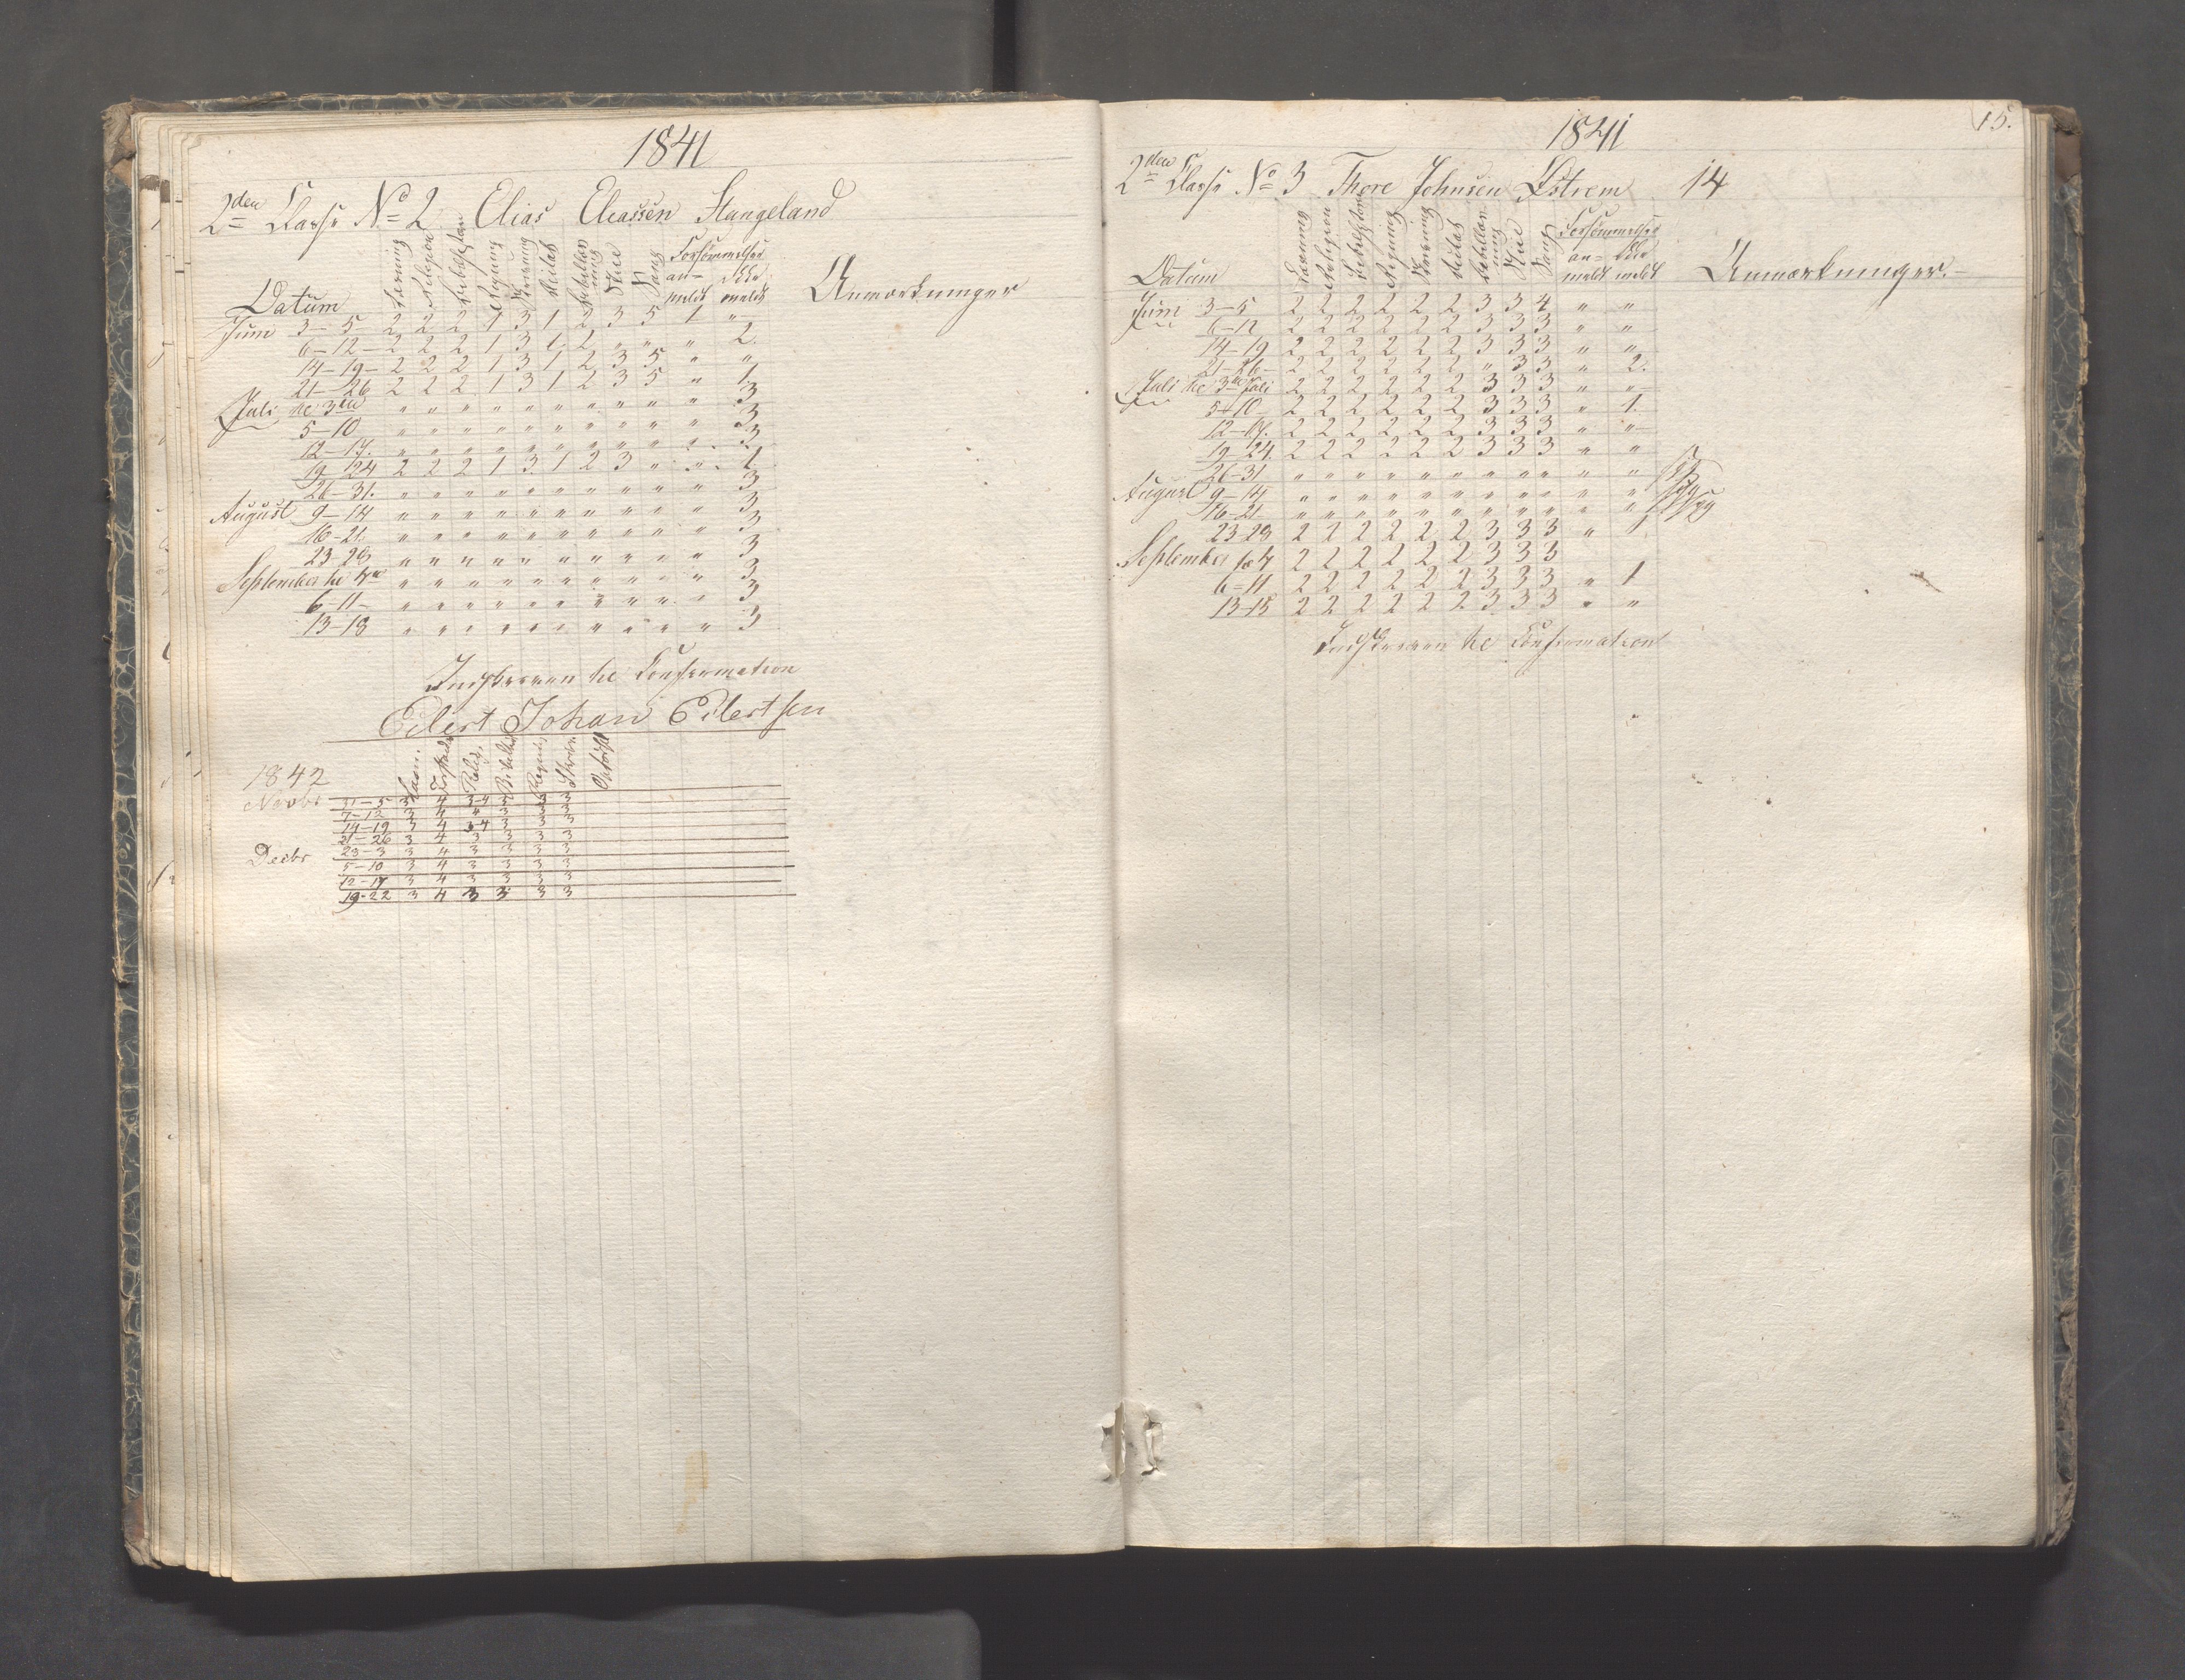 1841
2den Classe No 2 Elias Eliassen Stangeland
Datum Læsning Religion Regning Skrivning Flid Sang Forsömmelser an- meldt Ikke meldt Anmærkninger
Juni 3-5- 2 2 2 1 3 1 2 3 5 1 "
6-12- 2 2 2 1 3 1 2 " " " 2.
14-19- 2 2 2 1 3 1 2 3 5 " "
21-26 2 2 2 1 3 1 2 3 5 " 1
Juli " " " " " " " " " " 3
5-10 " " " " " " " " " " 3
12-17. " " " " " " " " " " 3
19-24 2 2 2 1 3 1 2 3 " " 1
26-31. " " " " " " " " " " 3
August 9-14 " " " " " " " " " " 3
16-21. " " " " " " " " " " 3
23-28 " " " " " " " " " " 3
September " " " " " " " " " " 3
6-11- " " " " " " " " " " 3
13-18 " " " " " " " " " " 3
Indskreven til Confirmation
Eilert Johan Eilertsen
1842 Læsn. Relig. Regn. Skriv.
Novbr 31-5 3 4 3-4 3 3 3
7-12 3 4 " 3 3 3
14-19 3 4 3-4 3 3 3
21-26 3 4 3 3 3 3
Decbr 3 4 3 3 3 3
5-10 3 4 3 3 3 3
12-17 3 4 3 3 3 3
19-22 3 4 3 3 3 3
15.
1841
2den Classe No 3 Thore Johnsen Østrem 14
Datum Læsning Religion Regning Skrivning Flid Sang Forsömmelser an- meldt Ikke meldt Anmærkninger.-
Juni 3-5 2 2 2 2 2 2 3 3 4 " "
6-12 2 2 2 2 2 2 3 3 3 " "
14-19 2 2 2 2 2 2 3 3 3 " "
21-26- 2 2 2 2 2 2 " 3 3 " 2.
Juli 2 2 2 2 2 2 3 3 3 " "
5-10 2 2 2 2 2 2 3 3 3 " 1.
12-17. 2 2 2 2 2 2 3 3 3 " "
19-24. 2 2 2 2 2 2 3 3 3 " "
26-31 " " " " " " " " " " " syg
August 9-14 " " " " " " " " " " " syg
16-21 " " " " " " " " " " " syg
23-28 2 2 2 2 2 2 3 3 3 " 1
September 2 2 2 2 2 2 3 3 3
6-11 2 2 2 2 2 2 3 3 3 " 1
13-18 2 2 2 2 2 2 3 3 3 " "
Indskreven til Confirmation